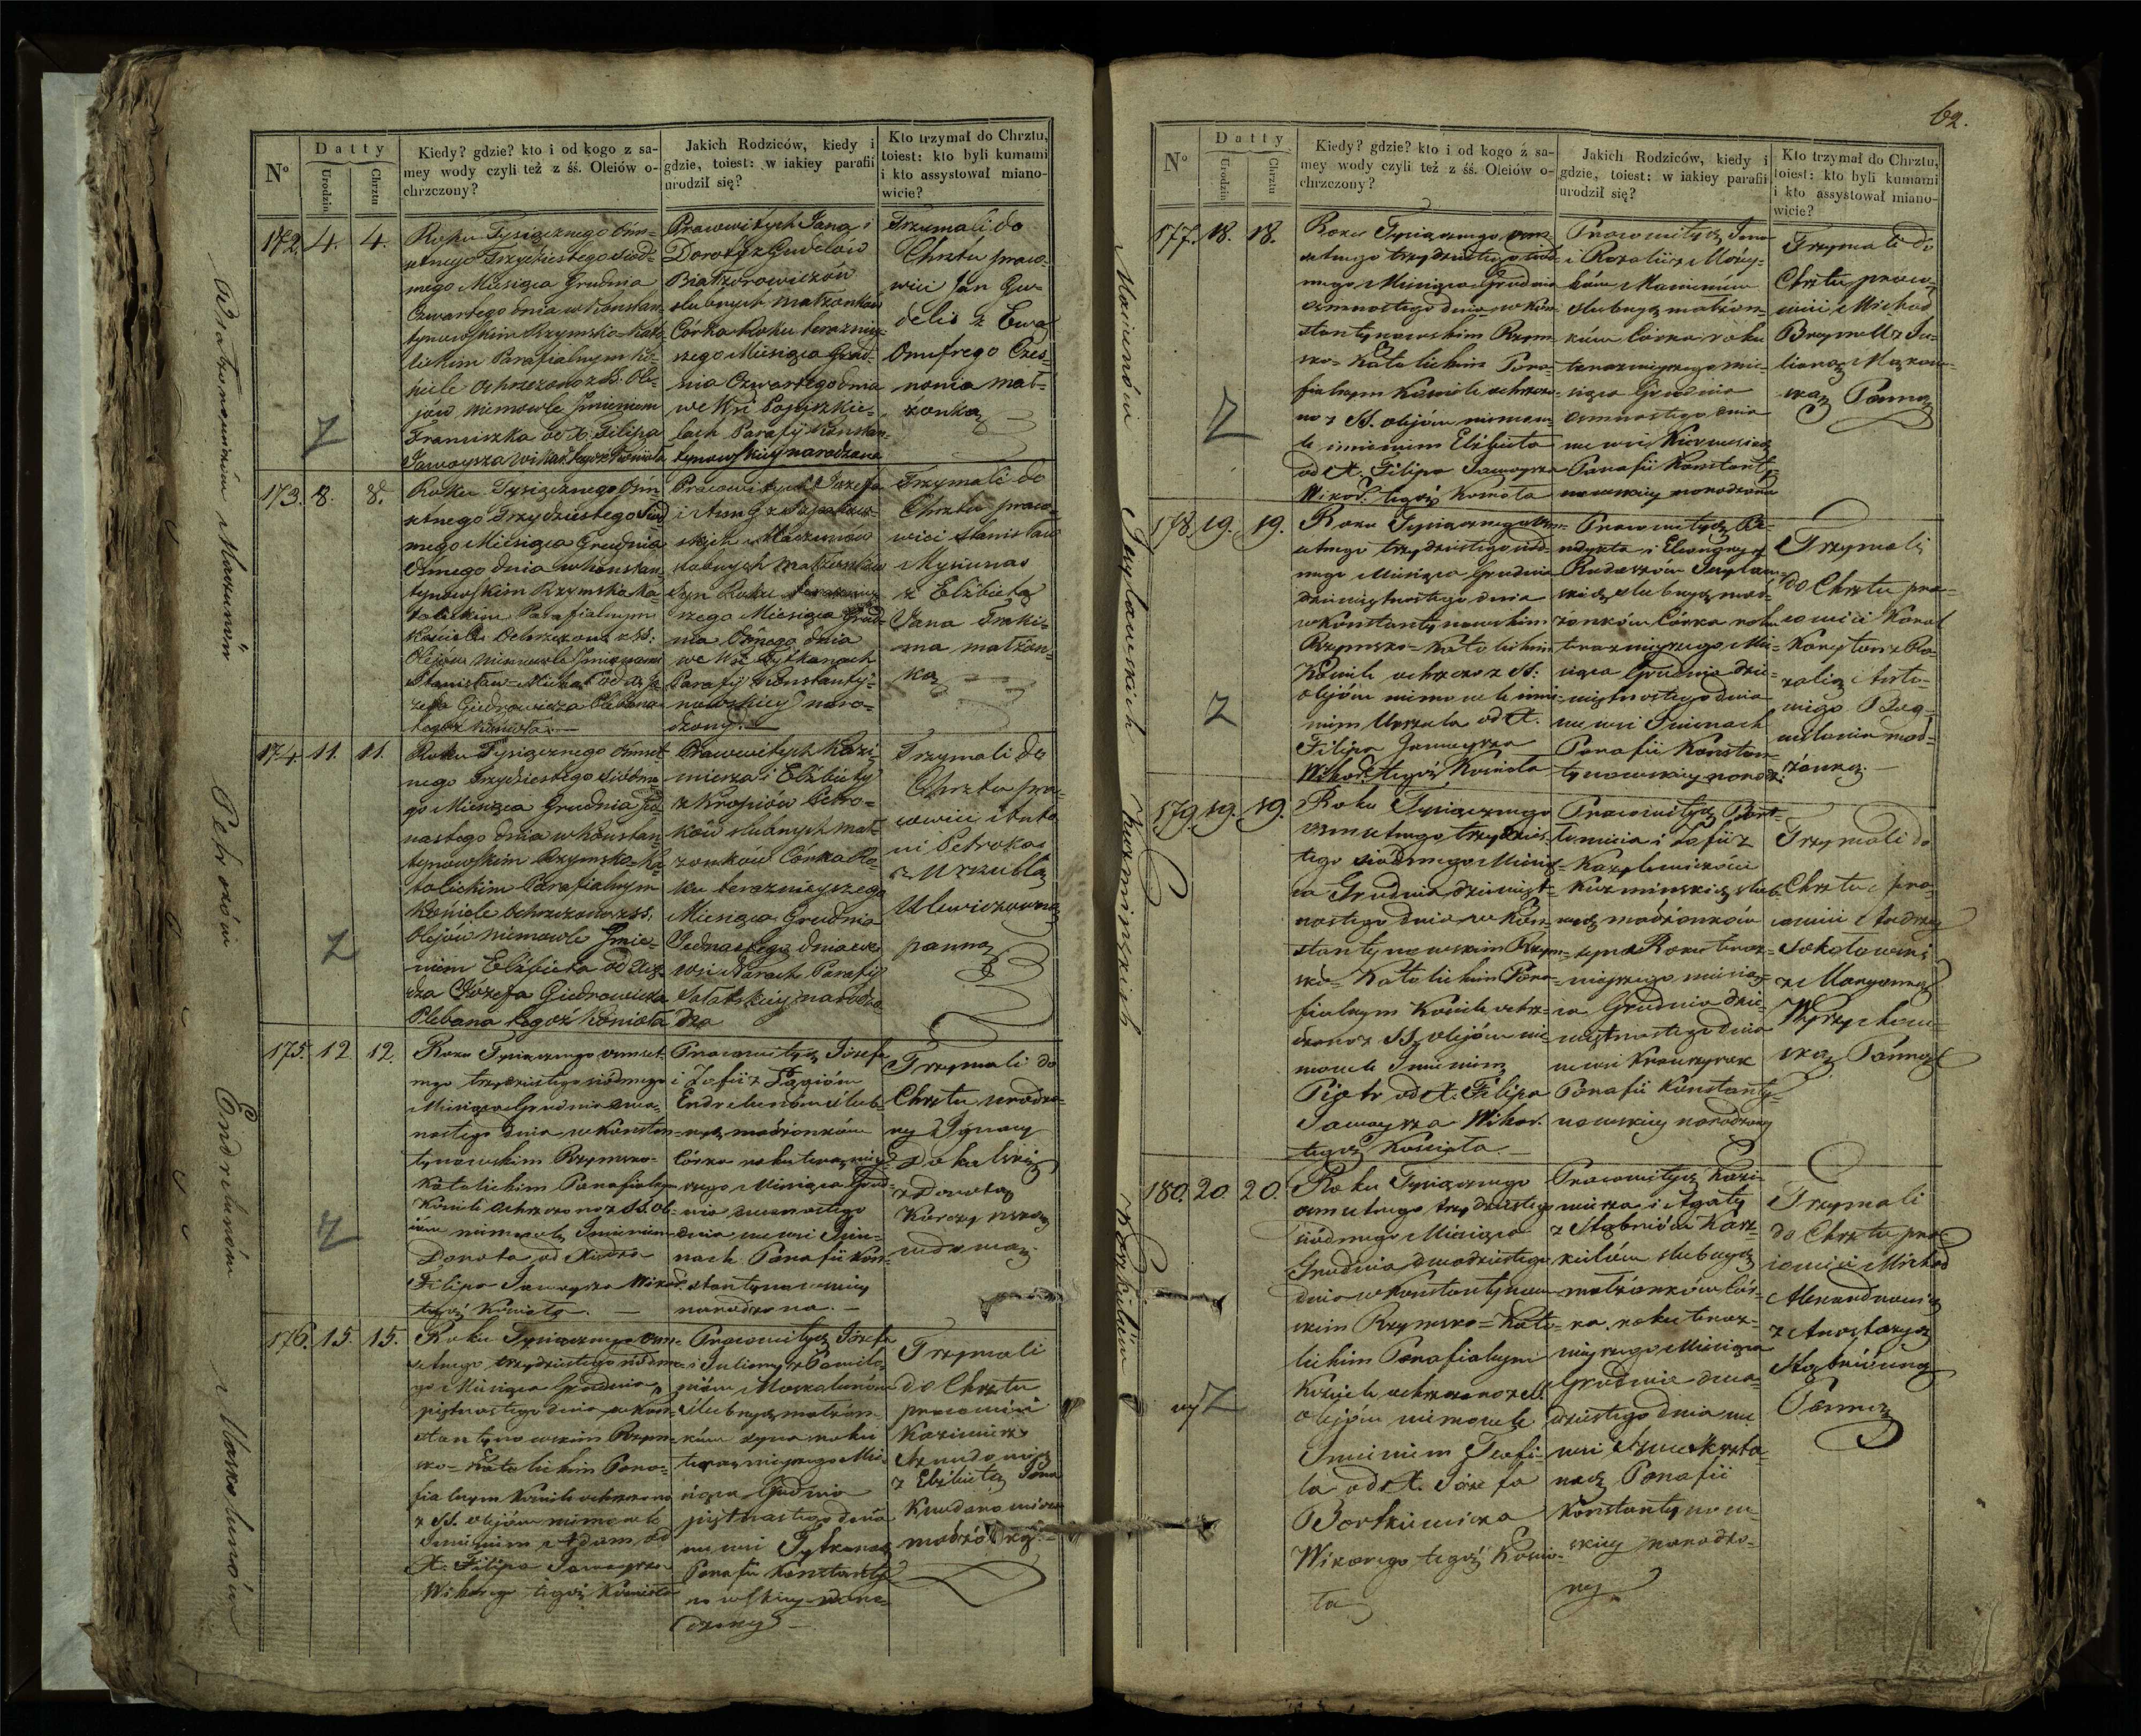 62.
Nº
Datty
Urodzin
Chrztu
Kiedy? gdzie? kto i od kogo z sa-
mey wody czyli też z śś. Oleiów o-
chrzczony?
Jakich Rodziców, kiedy i
gdzie, toiest: w iakiey parafii
urodził się?
Kto trzymał do Chrztu,
toiest: kto byli kumami
i kto assystował miano-
wicie?
172. 4. 4.
Roku Tysiącznego Ośm-
setnego Trzydziestego Siód-
mego Miesiąca Grudnia
Czwartego dnia w Konstan-
tynowskim Rzymsko-Kato-
lickim Parafialnym Ko-
ściele Ochrzczono z SS. Ole-
jów niemowle Jmieniem
Franciszka od X. Filipa
Jawoysza Wikar. tegoż Kościoła
Prawowitych Jana i
Doroty z Gudelów
Białzorowiczów
slubnych małżonków
Córka Roku teraźniey-
szego Miesiąca Grud-
nia Czwartego dnia
we Wsi
Parafij Konstan-
tynowskiey narodzona
Trzymali do
Chrztu praco-
wici Jan Gu-
delis z Ewą
Onufrego Czes-
nonia mał-
żonką
173. 8. 8.
Roku Tysiącznego Ośm-
setnego Trzydziestego Siód
mego Miesiąca Grudnia
Osmego dnia w Konstan-
tynowskim Rzymsko Ka-
tolickim Parafialnym
Kościele Ochrzczono z SS.
Olejów niemowle Jmieniem
Stanisław-Michał od X. Jó-
zefa Giedrowicza Plebana
tegoż Kościoła.
Pracowitych Józefa
i Anny
skich Maszunów
slubnych małżonków
Syn Roku teraźniey-
szego Miesiąca Grud-
nia Osmego dnia
we Wsi Tytkanach
Parafij Konstanty-
nowskiey naro-
dzony.
Trzymali do
Chrztu praco-
wici Stanisław
Mysiunas
z Elżbietą
Jana Traki-
ma małżon-
ką
174. 11. 11.
Roku Tysiącznego Ośmset-
nego Trzydziestego Siódme-
go Miesiąca Grudnia Jede-
nastego dnia w Konstan-
tynowskim Rzymsko-Ka-
tolickim Parafialnym
Kościele Ochrzczono z SS.
Olejów Niemowle Jmie-
niem Elżbieta od Xię-
dza Józefa Giedrowicza
Plebana tegoż Kościoła
Pracowitych Kazi-
mierza i Elżbiety
z Kropiów Petro-
ków slubnych mał-
żonków Córka Ro-
ku teraznieyszego
Miesiąca Grudnia
Jednastego dnia we
wsi Narach Parafij
Sałackiey narodzo-
na
Trzymali do
Chrztu pra-
cowici Anto
ni Petrokas
z Urszullą
Ulewiczowną
panną
175. 12. 12.
Roku Tysiącznego ośmset-
nego trzydziestego siódmego
Miesiąca Grudnia dwu-
nastego dnia w Konstan-
tynowskim Rzymsko-
Katolickim Parafialnym
Kościele Ochrzczono z SS. Ole-
iów niemowle Imieniem
Donata od Xiędza
Filipa Jawoysza Wikar.
tegoż Kościoła.
Pracowitych Józefa
i Zofii z Pągiów
Endrelunów slub-
nych małżonków
Córka roku teraźniey-
szego Miesiąca Grud-
nia dwunastego
dnia we wsi Smil-
nach Parafii Kon-
stantynowskiey
narodzona.
Trzymali do
Chrztu urodzo-
ny Ignacy
z Donatą
wdową
176. 15. 15.
Roku Tysiącznego ośm-
setnego trzydziestego siódme-
go Miesiąca Grudnia
piętnastego dnia w Kon-
stantynowskim Rzym-
sko-Katolickim Para-
fialnym Kościele ochrzczono
z SS. olejów niemowle
Imieniem Adam od
X. Filipa Jawoysza
Wikarego tegoż Kościoła
Pracowitych Józefa
i Julianny z Pawiło-
niów Moskalunów
slubnych małżon-
ków syn roku
teraźnieyszego Mie-
siąca Grudnia
piętnastego dnia
we wsi Tytkanach
Parafii Konstanty-
nowskiey naro-
dzony
Trzymali
do Chrztu
pracowici
Kazimierz
z Elżbietą Jana
małżonką
Białozorowiczów Maszunów Petroków Endrelunów i Moskalunów
177. 18. 18.
Roku Tysiącznego ośm-
setnego trzydziestego siód-
mego Miesiąca Grudnia
osmnastego dnia w Kon-
stantynowskim Rzym-
sko-Katolickim Para-
fialnym Kościele ochrzczo-
no z SS. olejów niemow-
le imieniem Elżbieta
od X. Filipa Jawoysza
Wikar. tegoż Kościoła
Pracowitych Jana
i Rozalii z
Macieniów
slubnych małżon-
ków Córka roku
teraznieyszego mie-
siąca Grudnia
osmnastego dnia
we wsi
Parafii Konstanty-
nowskiey narodzona
Trzymali do
Chrztu praco-
wici Michał
z Ju-
lianą
Panną
178. 19. 19.
Roku Tysiącznego ośm-
setnego trzydziestego siód-
mego Miesiąca Grudnia
dziewiętnastego dnia
w Konstantynowskim
Rzymsko-Katolickim
Kościele ochrzczo z SS.
olejów niemowle imie-
niem Urszula od X.
Filipa Jawoysza
Wikar. tegoż Kościoła
Pracowitych Be-
nedykta i Eleonory z
Rudaszów
slubnych mał-
żonków Córka roku
teraznieyszego Mie-
siąca Grudnia dzie-
więtnastego dnia
we wsi Smilnach
Parafii Konstan-
tynowskiey narodz.
Trzymali
do Chrztu pra-
cowici Karol
z Ro-
zalią Anto-
niego
mał-
żonką.
179. 19. 19.
Roku Tysiącznego
osmsetnego trzydzies-
tego siódmego Miesią-
ca Grudnia dziewięt-
nastego dnia w Kon-
stantynowskim Rzym-
sko-Katolickim Para-
fialnym Kościele ochrz-
czono z SS. olejów nie-
mowle Imieniem
Piotr od X. Filipa
Jawoysza Wikar.
tegoż Kościoła.
Pracowitych Bart-
łomieia i Zofii z
Kuzminskich slub-
nych małżonków
syn Roku teraz-
nieyszego miesią-
ca Grudnia dzie-
więtnastego dnia
we wsi
Parafii Konstanty-
nowskiey narodzony
Trzymali do
Chrztu pra-
cowici Andrzey
Sokołowski
z Maryanną
Panną
180. 20. 20.
Roku Tysiącznego
osmsetnego trzydziestego
siódmego Miesiąca
Grudnia dwudziestego
dnia w Konstantynow-
skim Rzymsko-Kato-
lickim Parafialnym
Kościele ochrzczono z SS.
olejów niemowle
Imieniem Teofi-
la od X. Józefa
Bortkiewicza
Wikarego tegoż Kościo-
ła
Pracowitych Kazi-
mierza i Agaty
z Stąbrów Karz-
kielów slubnych
małżonków Cór-
ka roku teraz-
nieyszego Miesiąca
Grudnia dwu-
dziestego dnia we
wsi
Parafii
Konstantynow-
skiey narodzo-
ny.
Trzymali
do Chrztu pra-
cowici Michał
Alexandrowicz
z Anastazyą
Panną